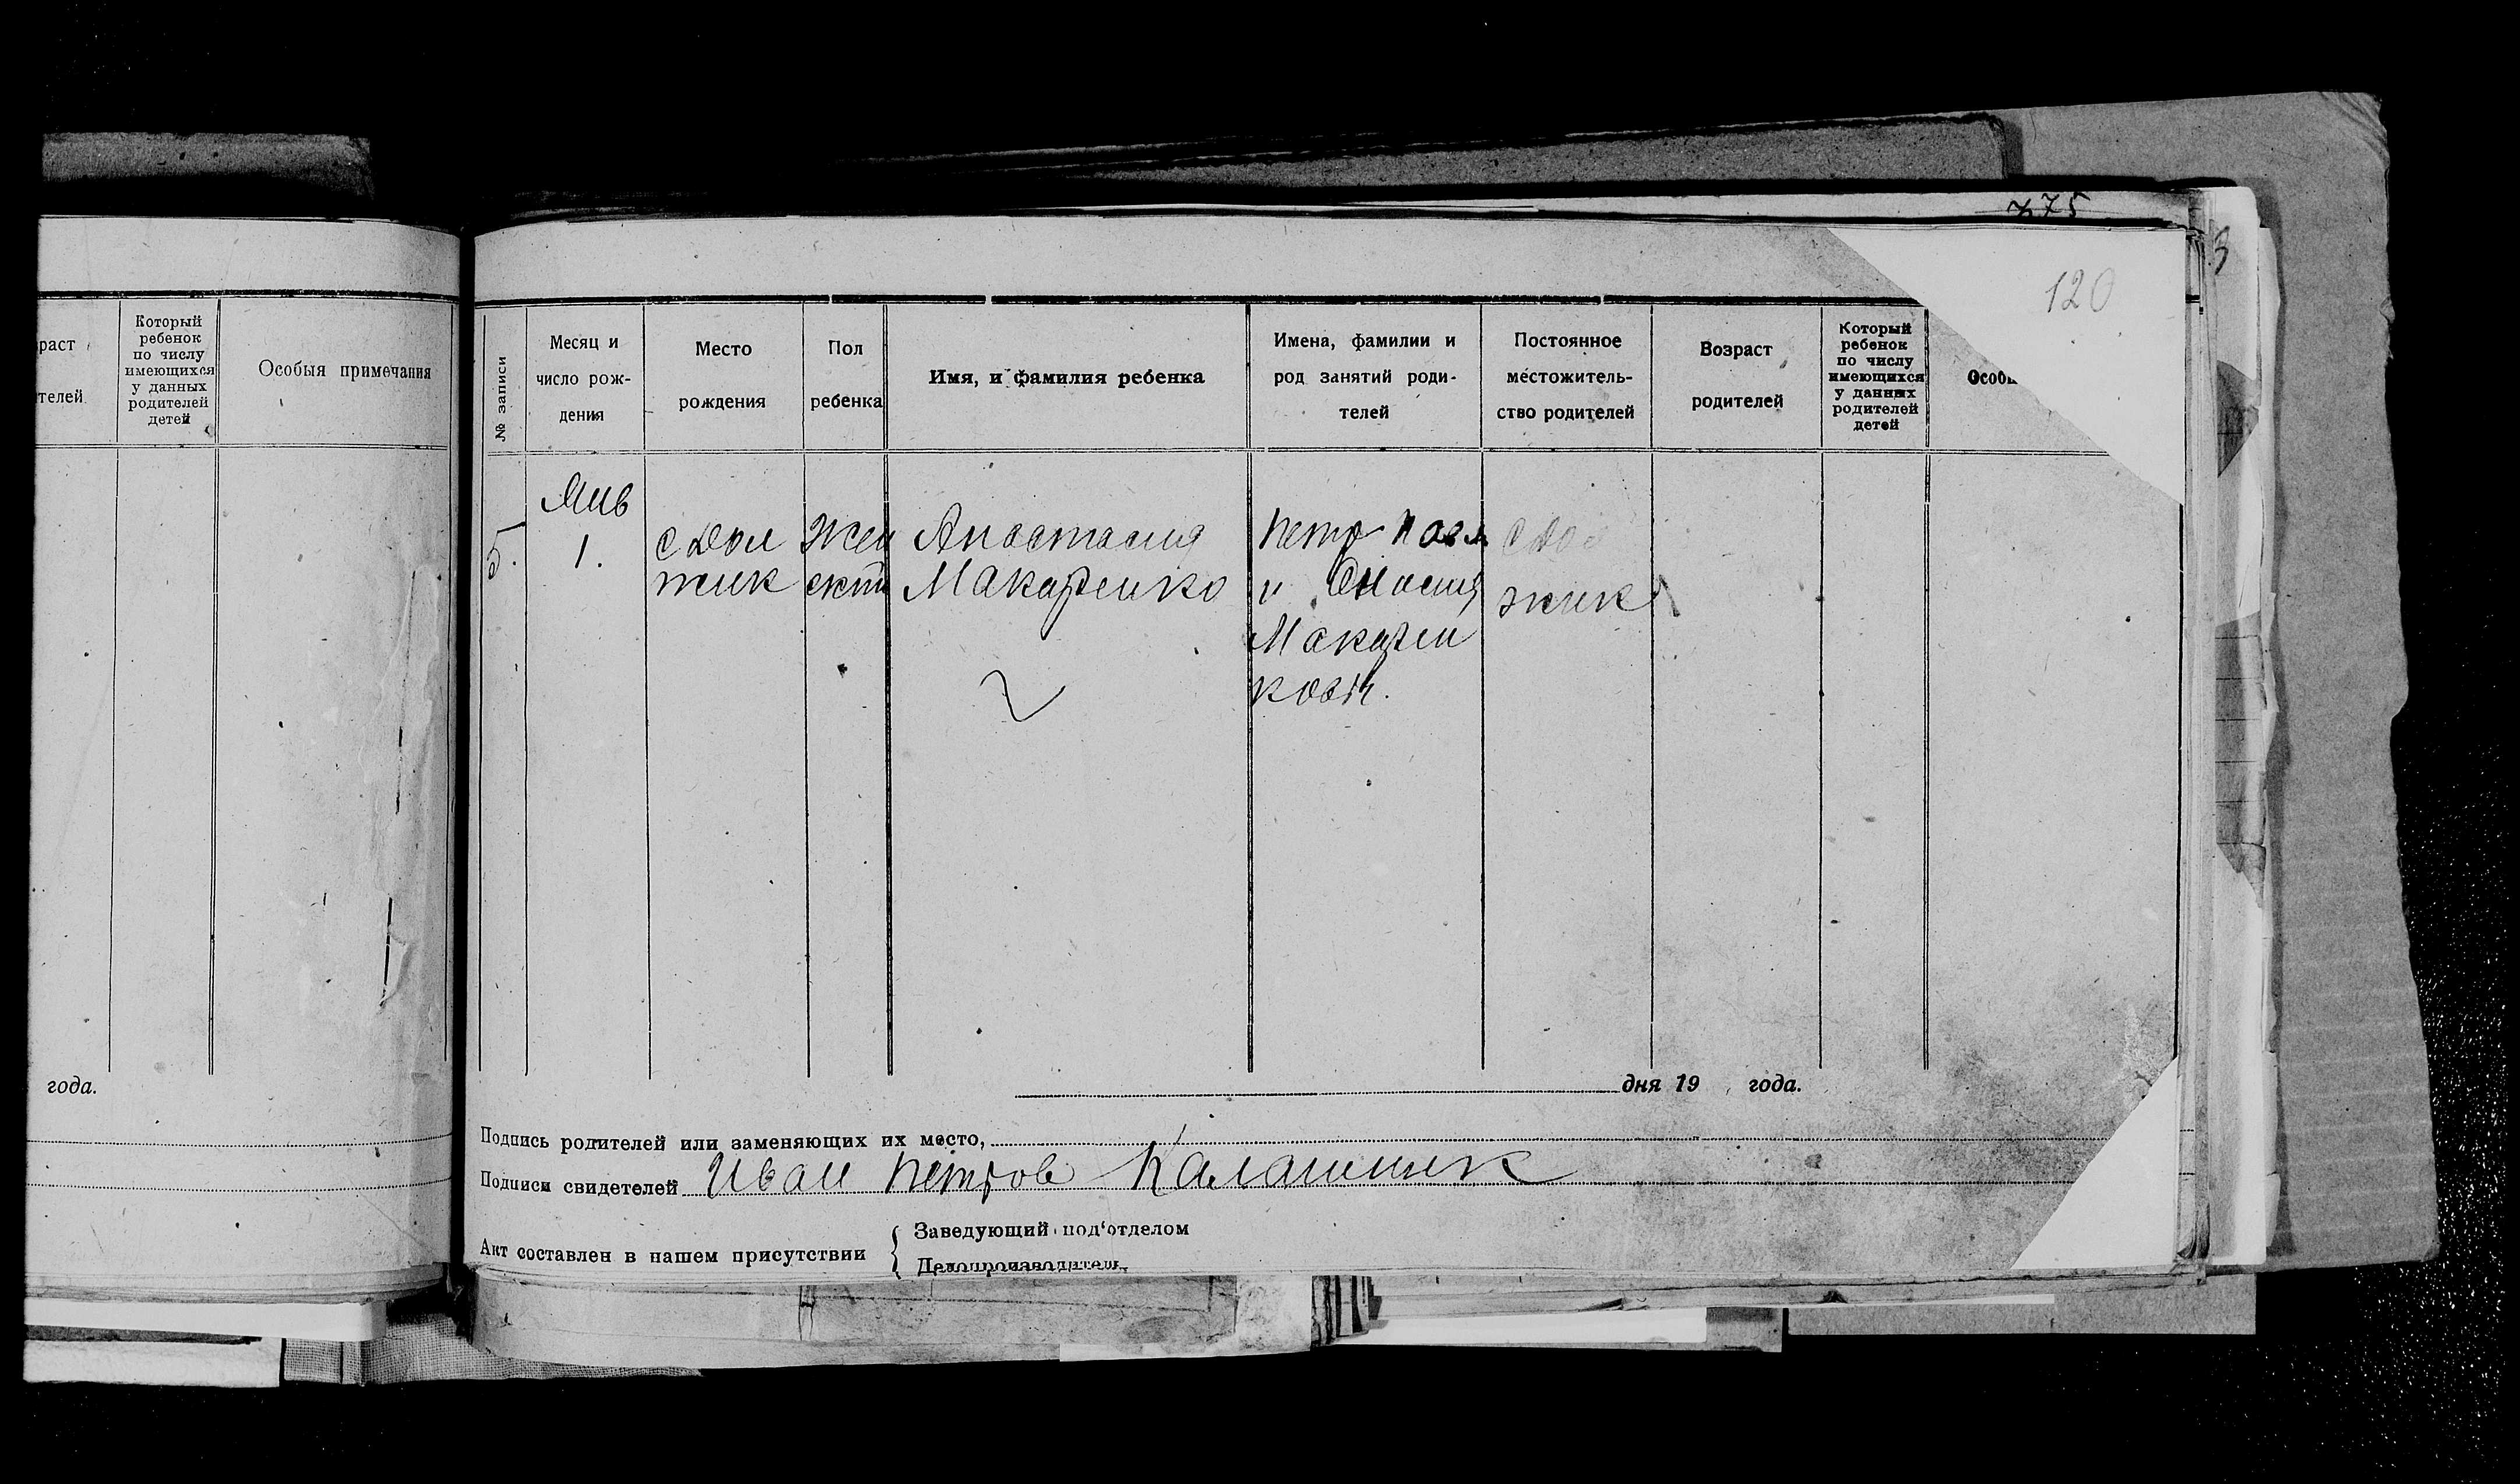 275
3
120
раст
телей.
Который
ребенок
по числу
имеющихся
у данных
родителей
детей
Особыя примечания
года.
№ записи
Месяц и
число рож-
дения
Место
рождения
Пол
ребенка
Имя, и фамилия ребенка
Имена, фамилии и
род занятий роди-
телей
Постоянное
местожитель-
ство родителей
Возраст
родителей
Который
ребенок
по числу
имеющихся
у данных
родителей
детей
Особы
5.
Янв
1.
с Дол
жик
Жен
ский
Анастасия
Макаренко
Петр Павл
и
Макарен
ковы.
с До
жик
дня 19 года.
Подпись родителей или заменяющих их место,
Подписи свидетелей Иван Петров Калашник
Акт составлен в нашем присутствии
Заведующий под'отделом
Делопроизводитель